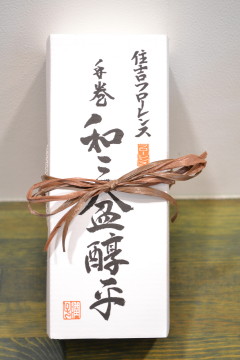 住吉フローレンス
手巻
和三盆醇平